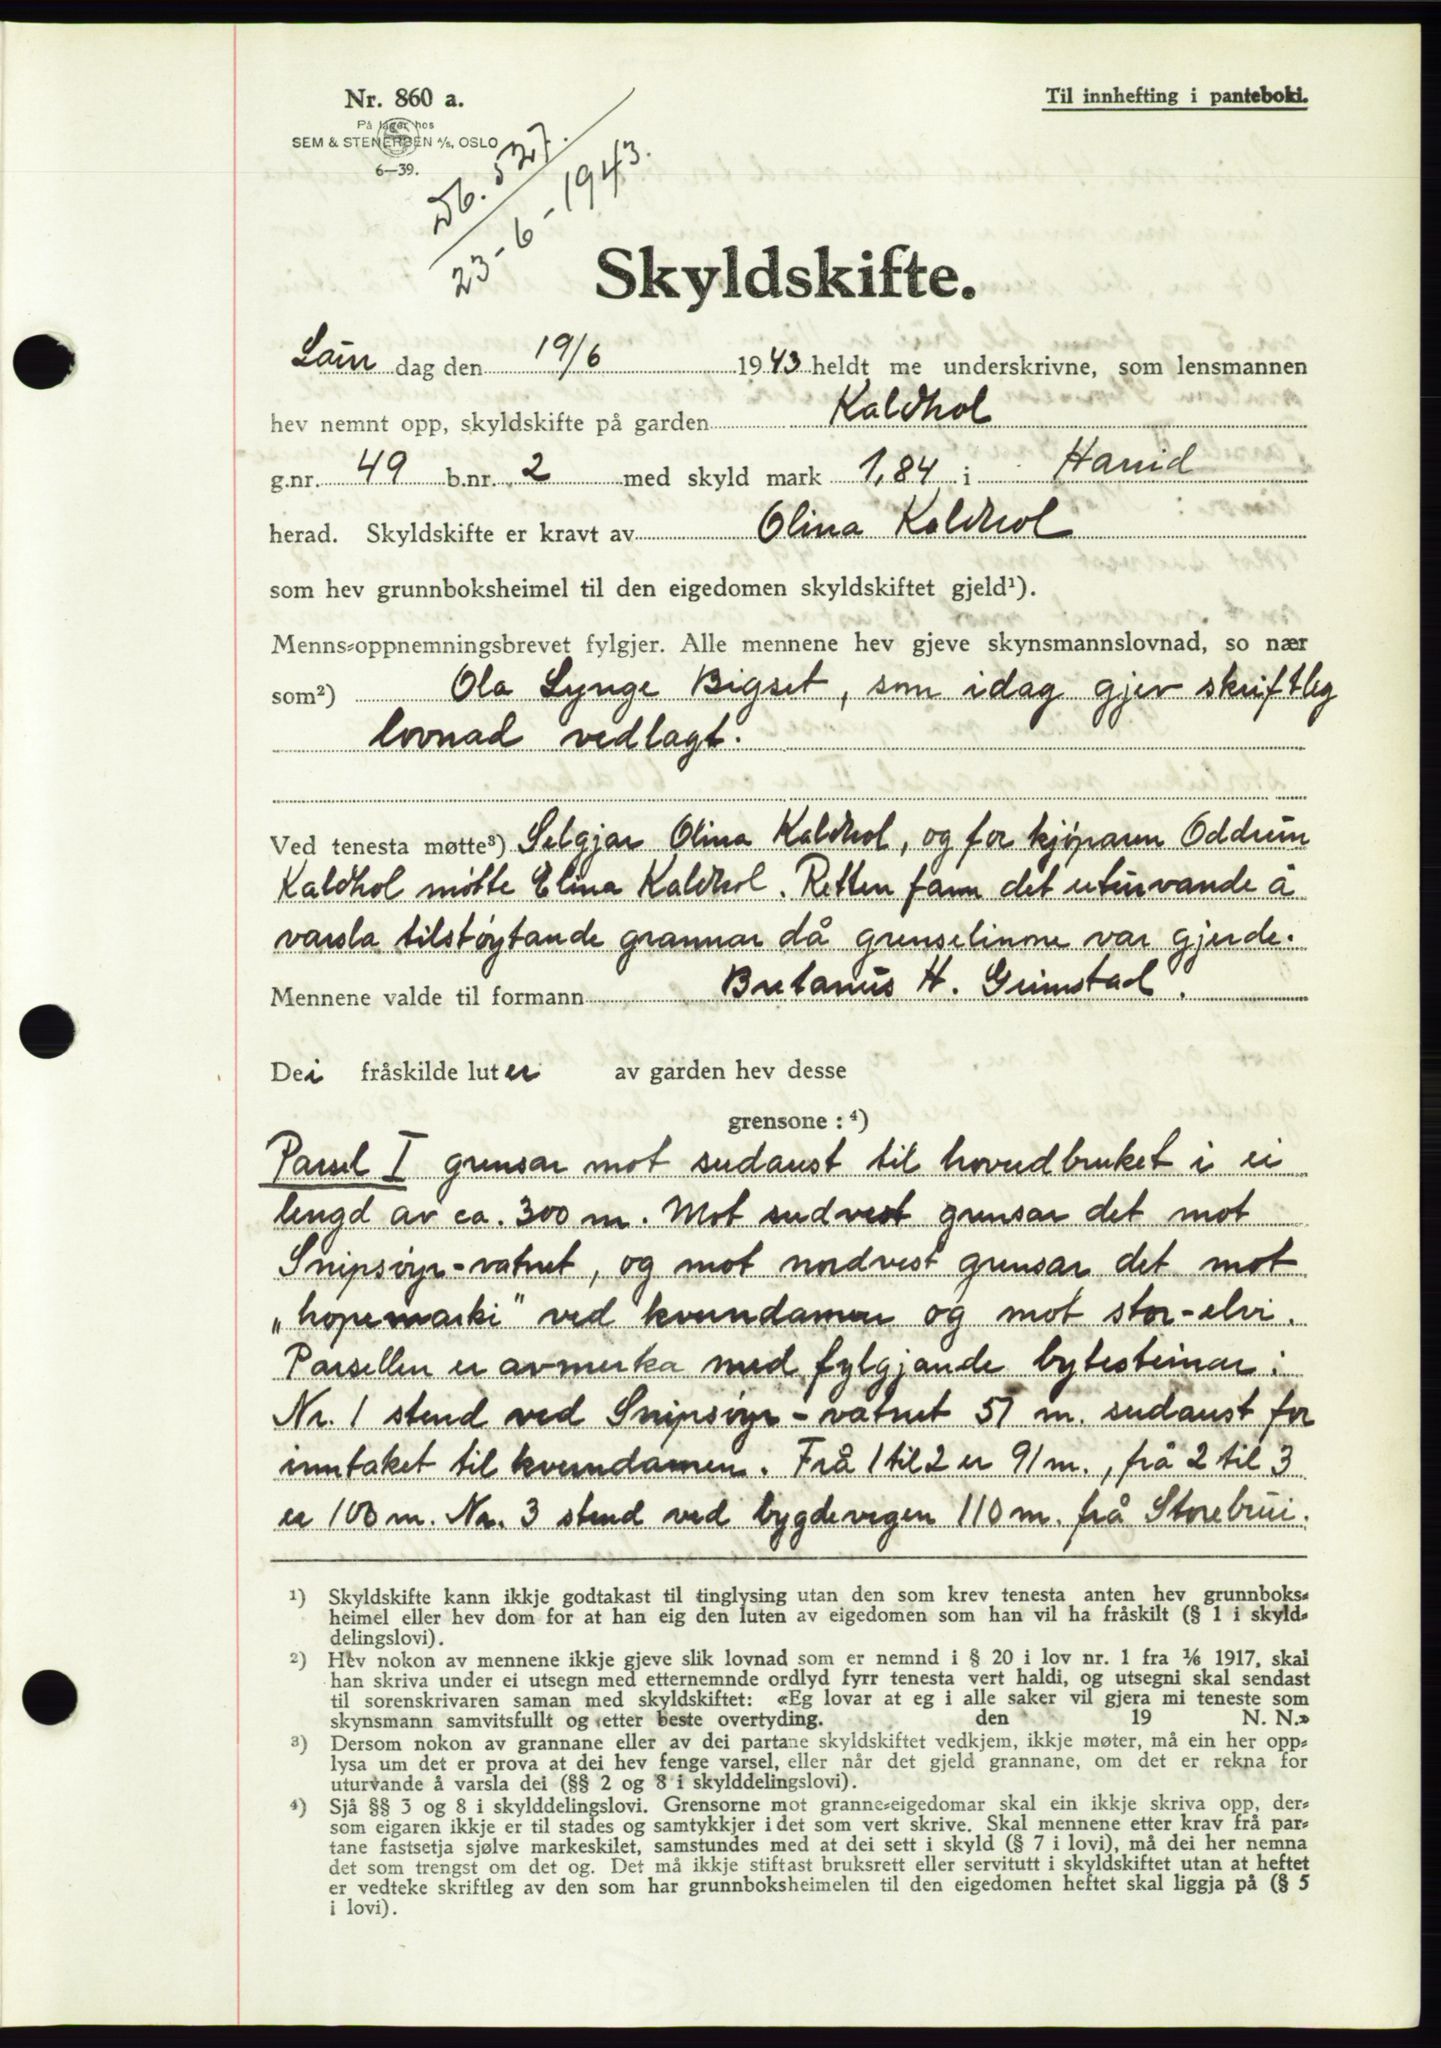 Nr. 860 a.
På lager hos
SEM & STENERSEN A/S, OSLO
6—39.
Til innhefting i panteboki.
Db. 527.
23-6-1943.
Skyldskifte.
Laur dag den 19/6 1943 heldt me underskrivne, som lensmannen
hev nemnt opp, skyldskifte på garden Kaldhol
g.nr. 49 b.nr. 2 med skyld mark 1,84 i Harid
herad. Skyldskifte er kravt av Olina Kaldhol
som hev grunnboksheimel til den eigedomen skyldskiftet gjeld¹).
Menns-oppnemningsbrevet fylgjer. Alle mennene hev gjeve skynsmannslovnad, so nær
som²) Ola Lynge Bigset, som idag gjev skriftleg
lovnad vedlagt.
Ved tenesta møtte³) Selgjar Olina Kaldhol, og for kjøparen Oddrun
Kaldhol møtte Elina Kaldhol. Retten fann det uturvande å
varsla tilstøytande grannar då grenselinone var gjerde.
Mennene valde til formann Bretanus H. Grimstad.
Dei fråskilde luter av garden hev desse
grensone : ⁴)
Parsel I grensar mot sudaust til hovudbruket i ei
lengd av ca. 300 m. Mot sudvest grensar det mot
Snipsøyr-vatnet, og mot nordvest grensar det mot
„hopemarki" ved kverndamen og mot stor-elvi.
Parsellen er avmerka med fylgjande bytesteinar:
Nr. 1 stend ved Snipsøyr-vatnet 57 m. sudaust for
inntaket til kverndamen. Frå 1 til 2 er 91 m., frå 2 til 3
er 100 m. Nr. 3 stend ved bygdevegen 110 m. frå Storebrui.
¹) Skyldskifte kann ikkje godtakast til tinglysing utan den som krev tenesta anten hev grunnboks-
heimel eller hev dom for at han eig den luten av eigedomen som han vil ha fråskilt (§ 1 i skyld-
delingslovi).
²) Hev nokon av mennene ikkje gjeve slik lovnad som er nemnd i § 20 i lov nr. 1 fra 1/6 1917, skal
han skriva under ei utsegn med etternemnde ordlyd fyrr tenesta vert haldi, og utsegni skal sendast
til sorenskrivaren saman med skyldskiftet: «Eg lovar at eg i alle saker vil gjera mi teneste som
skynsmann samvitsfullt og etter beste overtyding. den 19 N. N.»
³) Dersom nokon av grannane eller av dei partane skyldskiftet vedkjem, ikkje møter, må ein her opp-
lysa um det er prova at dei hev fenge varsel, eller når det gjeld grannane, om det er rekna for
uturvande å varsla dei (§§ 2 og 8 i skylddelingslovi).
⁴) Sjå §§ 3 og 8 i skylddelingslovi. Grensorne mot granne-eigedomar skal ein ikkje skriva opp, der-
som eigaren ikkje er til stades og samtykkjer i det som vert skrive. Skal mennene etter krav frå par-
tane fastsetja sjølve markeskilet, samstundes med at dei sett i skyld (§ 7 i lovi), må dei her nemna
det som trengst om det og. Det må ikkje stiftast bruksrett eller servitutt i skyldskiftet utan at heftet
er vedteke skriftleg av den som har grunnboksheimelen til den eigedomen heftet skal liggja på (§ 5
i lovi).